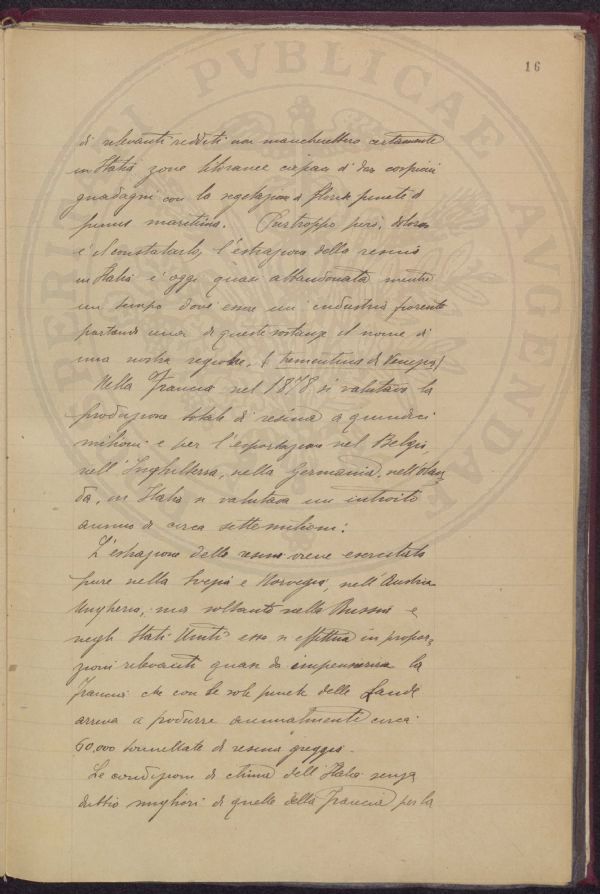 16
di rilevanti redditi non mancherebbero certamente
in Italia zone litoranee capaci di dar cospicui
guadagni con la vegetazione di floride pinete di
pinus maritima. Purtroppo però, doloroso
è il constatarlo, l'estrazione della resina
in Italia è oggi quasi abbandonata mentre
un tempo dovè essere un industria fiorente
portando una di queste sostanze il nome di
una nostra regione. (trementina di Venezia)
Nella Francia nel 1878 si valutava la
produzione totale di resina a quindici
milioni e per l'esportazione nel Belgio,
nell'Inghilterra, nella Germania, nell'Olan
da, in Italia si valutava un introito
annuo di circa sette milioni.
L'estrazione della resina viene esercitata
pure nella Svezia e Norvegia, nell'Austria
Ungheria, ma soltanto nella Russia e
negli Stati Uniti essa si effettua in propor
zioni rilevanti quasi da impensierire la
Francia che con le sole pinete delle Lande
arriva a produrre annualmente circa
60,000 tonnellate di resina greggia.
Le condizioni di clima dell'Italia senza
dubbio migliori di quelle della Francia per la